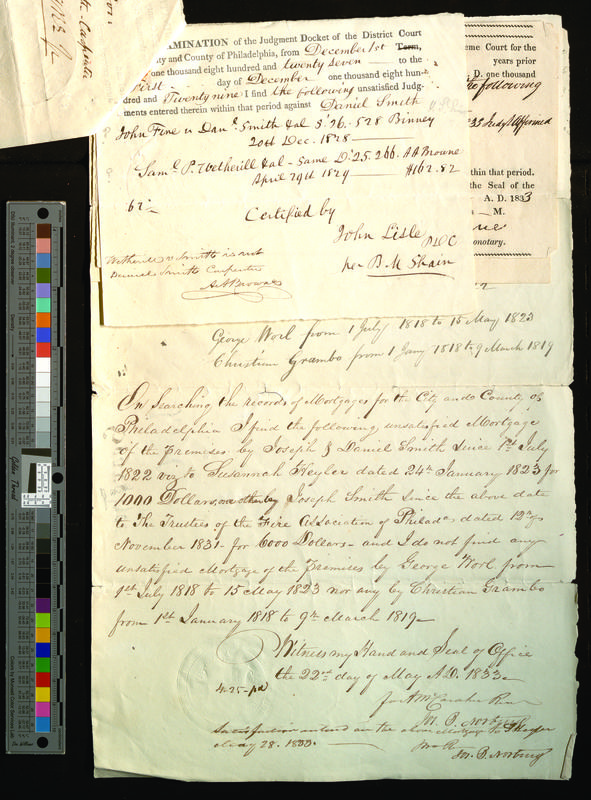 AMINATION of the Judgment Docket of the District Court
ity and County of Philadelphia, from December 1st Term,
one thousand eight hundred and twenty seven to the
First day of December one thousand eight hun-
dred and Twenty nine I find the following unsatisfied Judg-
ments entered therein within that period against Daniel Smith
John Fine v Danl Smith &al S' 26. 528 Binney
20th Dec. 1828
Saml P. Wetherill &al - Same D' 25. 266. AA Browne
April 29th 1829 $162.82
62
Certified by
John Lisle
per B. M. Shain
Wetherill v Smith is not
Daniel Smith Carpenter
AA Browne
eme Court for the
years prior
D. one thousand
the following
Affirmed
ithin that period.
the Seal of the
A. D. 1833
M.
onotary.
George Worl from 1 July 1818 to 15 May 1823
Christian Grambo from 1 Jany 1818 to 9 March 1819
On Searching the records of Mortgages for the City and County of
Philadelphia I find the following unsatisfied Mortgage
of the Premises by Joseph & Daniel Smith since 1st July
1822 viz to Susannah Keyler dated 24th January 1823 for
1000 Dollars, one other by Joseph Smith since the above date
to The Trustees of the Fire Association of Philada dated 12th
November 1831 - for 6000 Dollars - and I do not find any
unsatisfied Mortgage of the premises by George Worl from
1st July 1818 to 15 May 1823 nor any by Christian Grambo
from 1st January 1818 to 9th March 1819
Witness my Hand and Seal of Office
the 22nd day of May A.D. 1833
4.25 - pd
for
Satisfaction entered on the above Mortgage to
May 28. 1833.